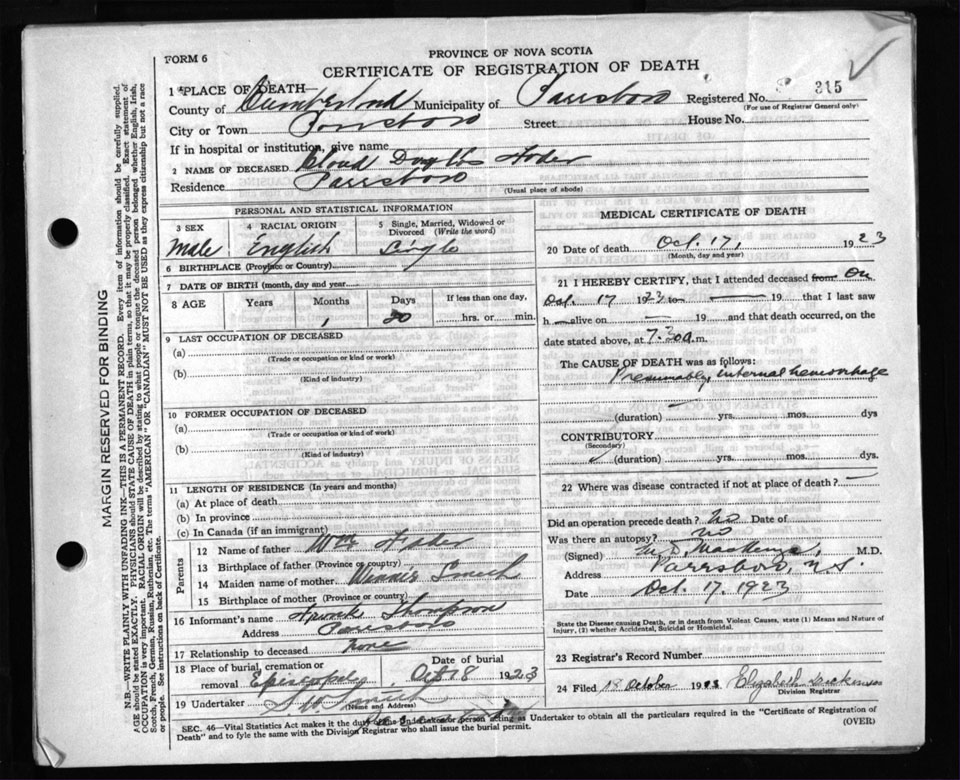 PROVINCE OF NOVA SCOTIA
FORM 6
CERTIFICATE OF REGISTRATION OF DEATH
1 PLACE OF DEATH
County of Cumberland Municipality of Parrsboro Registered No. 315
(For use of Registrar General only)
City or Town Parrsboro Street House No.
If in hospital or institution, give name
2 NAME OF DECEASED Douglas
Residence Parrsboro
(Usual place of abode)
PERSONAL AND STATISTICAL INFORMATION
3 SEX 4 RACIAL ORIGIN 5 Single, Married, Widowed or Divorced (Write the word)
Male English Single
6 BIRTHPLACE (Province or Country)
7 DATE OF BIRTH (month, day and year)
8 AGE Years Months Days If less than one day,
1 hrs. or min.
9 LAST OCCUPATION OF DECEASED
(a)
(Trade or occupation or kind or work)
(b)
(Kind of industry)
10 FORMER OCCUPATION OF DECEASED
(a)
(Trade or occupation or kind of work)
(b)
(Kind of industry)
11 LENGTH OF RESIDENCE (In years and months)
(a) At place of death
(b) In province
(c) In Canada (if an immigrant)
Parents
12 Name of father Wm
13 Birthplace of father (Province or country)
14 Maiden name of mother Winnie
15 Birthplace of mother (Province or country)
16 Informant's name Thompson
Address Parrsboro
17 Relationship to deceased none
18 Place of burial, cremation or removal Date of burial
Oct 18 1923
19 Undertaker
(Name and Address)
MEDICAL CERTIFICATE OF DEATH
20 Date of death Oct. 17, 1923
(Month, day and year)
21 I HEREBY CERTIFY, that I attended deceased from On
Oct. 17 19 to — 19 that I last saw
h — alive on — 19 and that death occurred, on
date stated above, at 7.30 a.m.
The CAUSE OF DEATH was as follows:
Presumably, internal hemorrhage
(duration) — yrs. mos. dys
CONTRIBUTORY
(Secondary)
(duration) yrs. mos. dys.
22 Where was disease contracted if not at place of death? —
Did an operation precede death? No Date of
Was there an autopsy? No
(Signed) MacKenzie, M.D.
Address Parrsboro, N.S.
Date Oct. 17, 1923
State the Disease causing Death, or in death from Violent Causes, state (1) Means and Nature of
Injury, (2) whether Accidental, Suicidal or Homicidal.
23 Registrar's Record Number
24 Filed 18 October 19 Elizabeth
Division Registrar
SEC. 46—Vital Statistics Act makes it the duty of the Undertaker or person acting as Undertaker to obtain all the particulars required in the "Certificate of Registration of
Death" and to fyle the same with the Division Registrar who shall issue the burial permit. (OVER)
MARGIN RESERVED FOR BINDING
N.B.—WRITE PLAINLY WITH UNFADING INK—THIS IS A PERMANENT RECORD. Every item of information should be carefully supplied.
AGE should be stated EXACTLY. PHYSICIANS should STATE CAUSE OF DEATH in plain terms, so that it may be properly classified. Exact statement of
OCCUPATION is very important. RACIAL ORIGIN will be described by stating to what people or tongue the deceased person belonged whether English, Irish,
Scotch, French, German, Russian, Ruthenian, etc. The terms "AMERICAN" or "CANADIAN" MUST NOT BE USED as they express citizenship but not a race
or people. See instructions on back of Certificate.